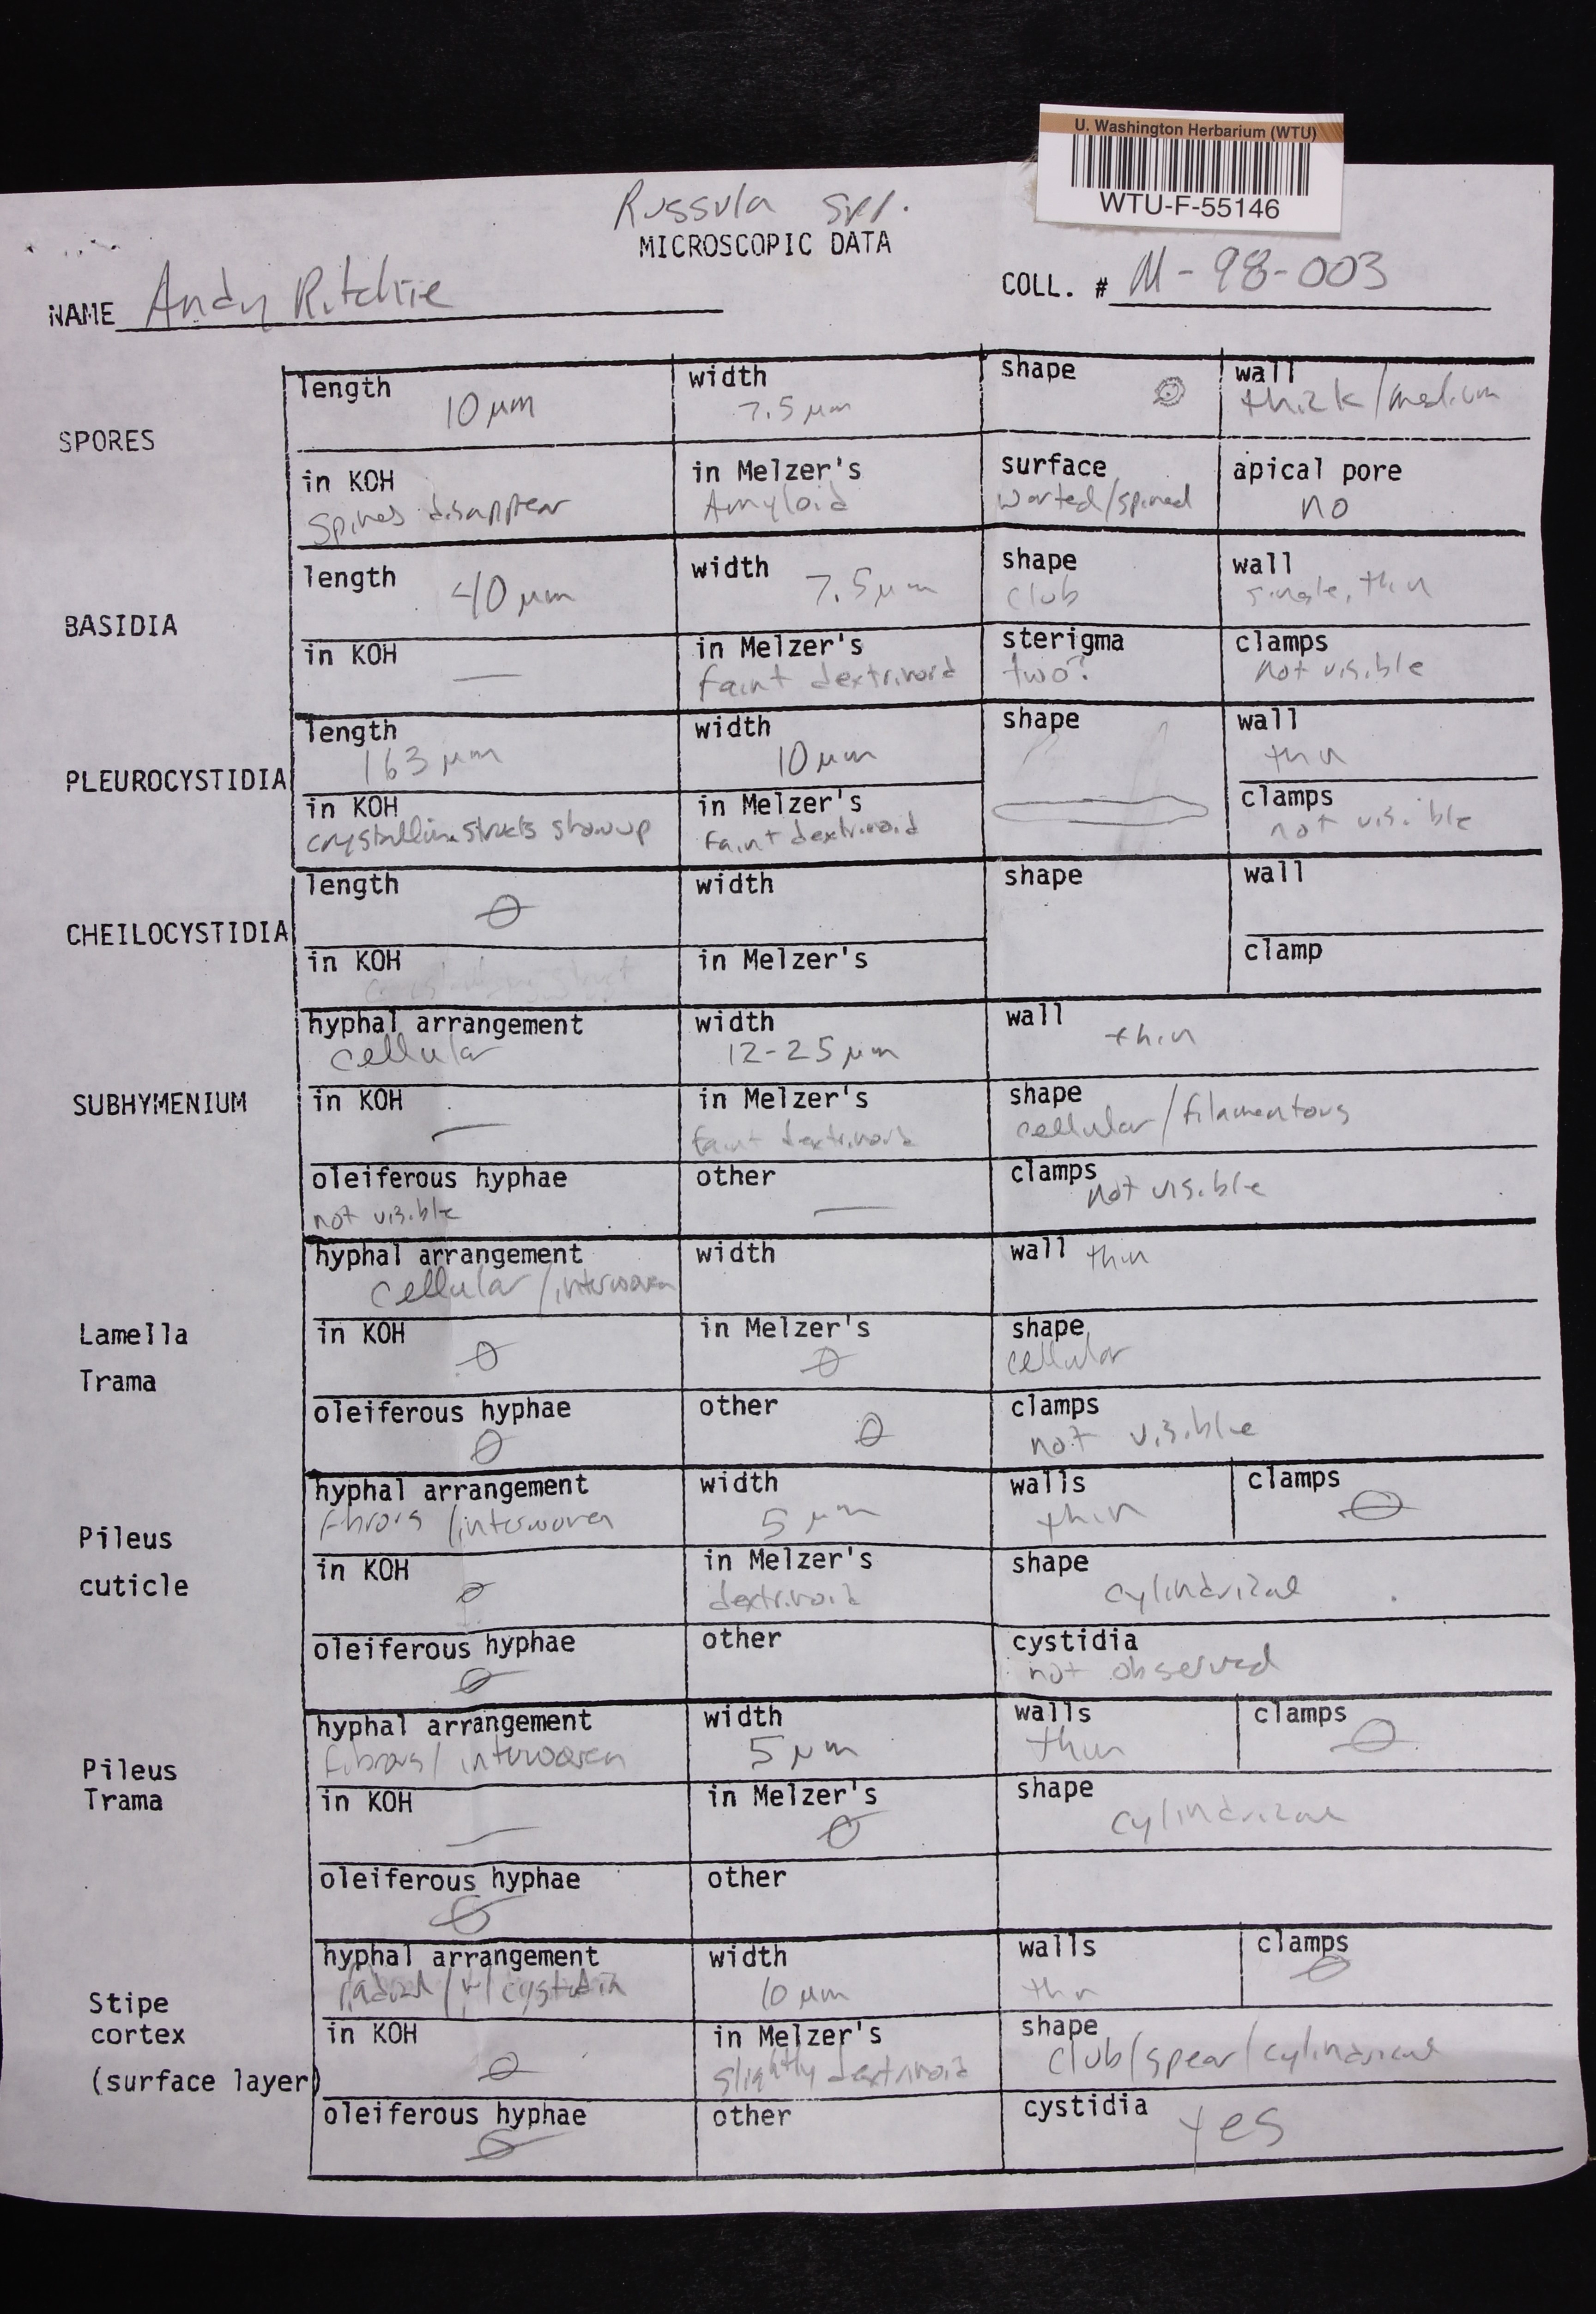 U. Washington Herbarium (WTU)
WTU-F-55146
Russula spp.
MICROSCOPIC DATA
NAME Andy Ritchie
COLL. # M-98-003
SPORES
length 10 µm
width 7.5 µm
shape
wall thick/medium
in KOH Spines disappear
in Melzer's Amyloid
surface warted/spined
apical pore no
BASIDIA
length 40 µm
width 7.5 µm
shape club
wall single, thin
in KOH —
in Melzer's faint dextrinoid
sterigma two?
clamps not visible
PLEUROCYSTIDIA
length 163 µm
width 10 µm
shape
wall thin
in KOH crystalline structs show up
in Melzer's faint dextrinoid
clamps not visible
CHEILOCYSTIDIA
length ∅
width
shape
wall
in KOH
in Melzer's
clamp
SUBHYMENIUM
hyphal arrangement cellular
width 12-25 µm
wall thin
in KOH —
in Melzer's faint dextrinoid
shape cellular/filamentous
oleiferous hyphae not visible
other —
clamps not visible
Lamella
Trama
hyphal arrangement cellular/interwoven
width
wall thin
in KOH ∅
in Melzer's ∅
shape cellular
oleiferous hyphae ∅
other ∅
clamps not visible
Pileus
cuticle
hyphal arrangement fibrous/interwoven
width 5 µm
walls thin
clamps ∅
in KOH ∅
in Melzer's dextrinoid
shape cylindrical
oleiferous hyphae ∅
other
cystidia not observed
Pileus
Trama
hyphal arrangement fibrous/interwoven
width 5 µm
walls thin
clamps ∅
in KOH —
in Melzer's ∅
shape cylindrical
oleiferous hyphae ∅
other
Stipe
cortex
(surface layer)
hyphal arrangement cystidia
width 10 µm
walls thin
clamps ∅
in KOH ∅
in Melzer's slightly dextrinoid
shape club/spear/cylindrical
oleiferous hyphae ∅
other
cystidia yes